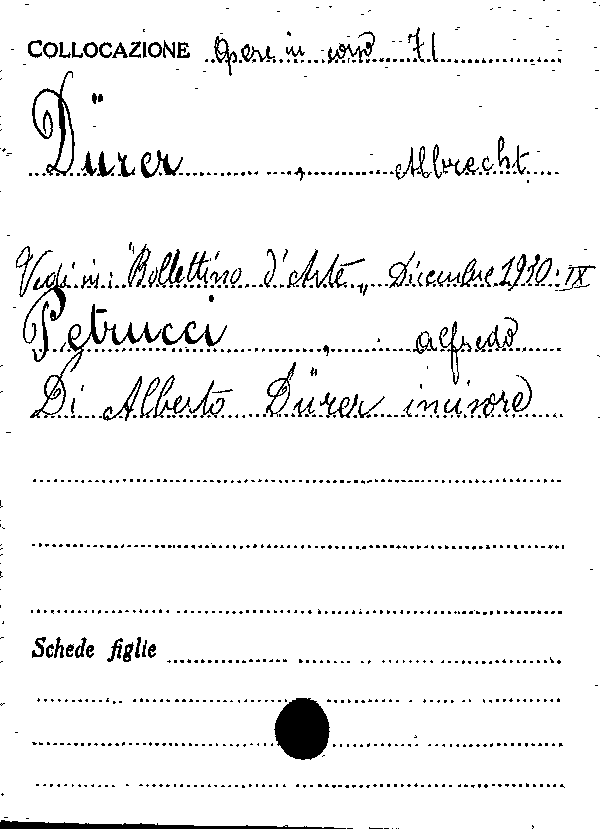 COLLOCAZIONE Opere in corso 71
Dürer, Albrecht
Vedi in: "Bollettino d'Arte„ Dicembre 1930-IX
Petrucci, Alfredo
Di Alberto Dürer incisore
Schede figlie